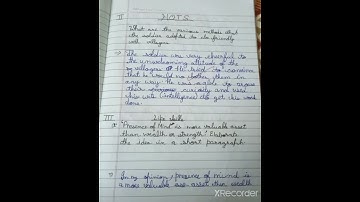 II HOTS
What are the various methods that
the soldier adopted to be friendly
with villagers.
→ The soldier was very cheerful to
the unwelcoming attitude of the
villagers. He tried to convince
that he would not bother them in
any way. He was able to rouse
their curiosity and used
his wits (intelligence) to get his work
done.
III Life skills
"Presence of mind is more valuable asset
than wealth or strength". Elaborate
the idea in a short paragraph.
→ In my opinion, presence of mind is
a more valuable asset than wealth
XRecorder